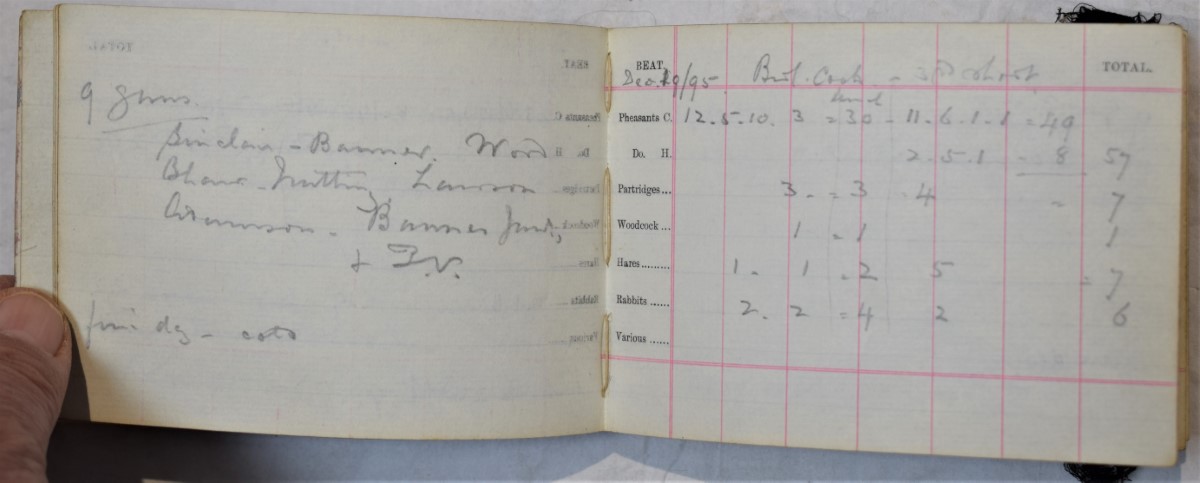 9 Guns.
Sinclair - Banner. Wood
Lawson
Adamson - Banner Junr,
+ F.V.
fine day - cold
BEAT. TOTAL.
Dec. 19/95 Cock - 3rd shoot
Pheasants C. 12.5.10. 3 = 30 - 11.6.1.1 = 49
Do. H. 2.5.1 = 8 57
Partridges... 3. = 3 4 = 7
Woodcock... 1 = 1 1
Hares......... 1. 1 = 2 5 = 7
Rabbits ...... 2. 2 = 4 2 6
Various ......